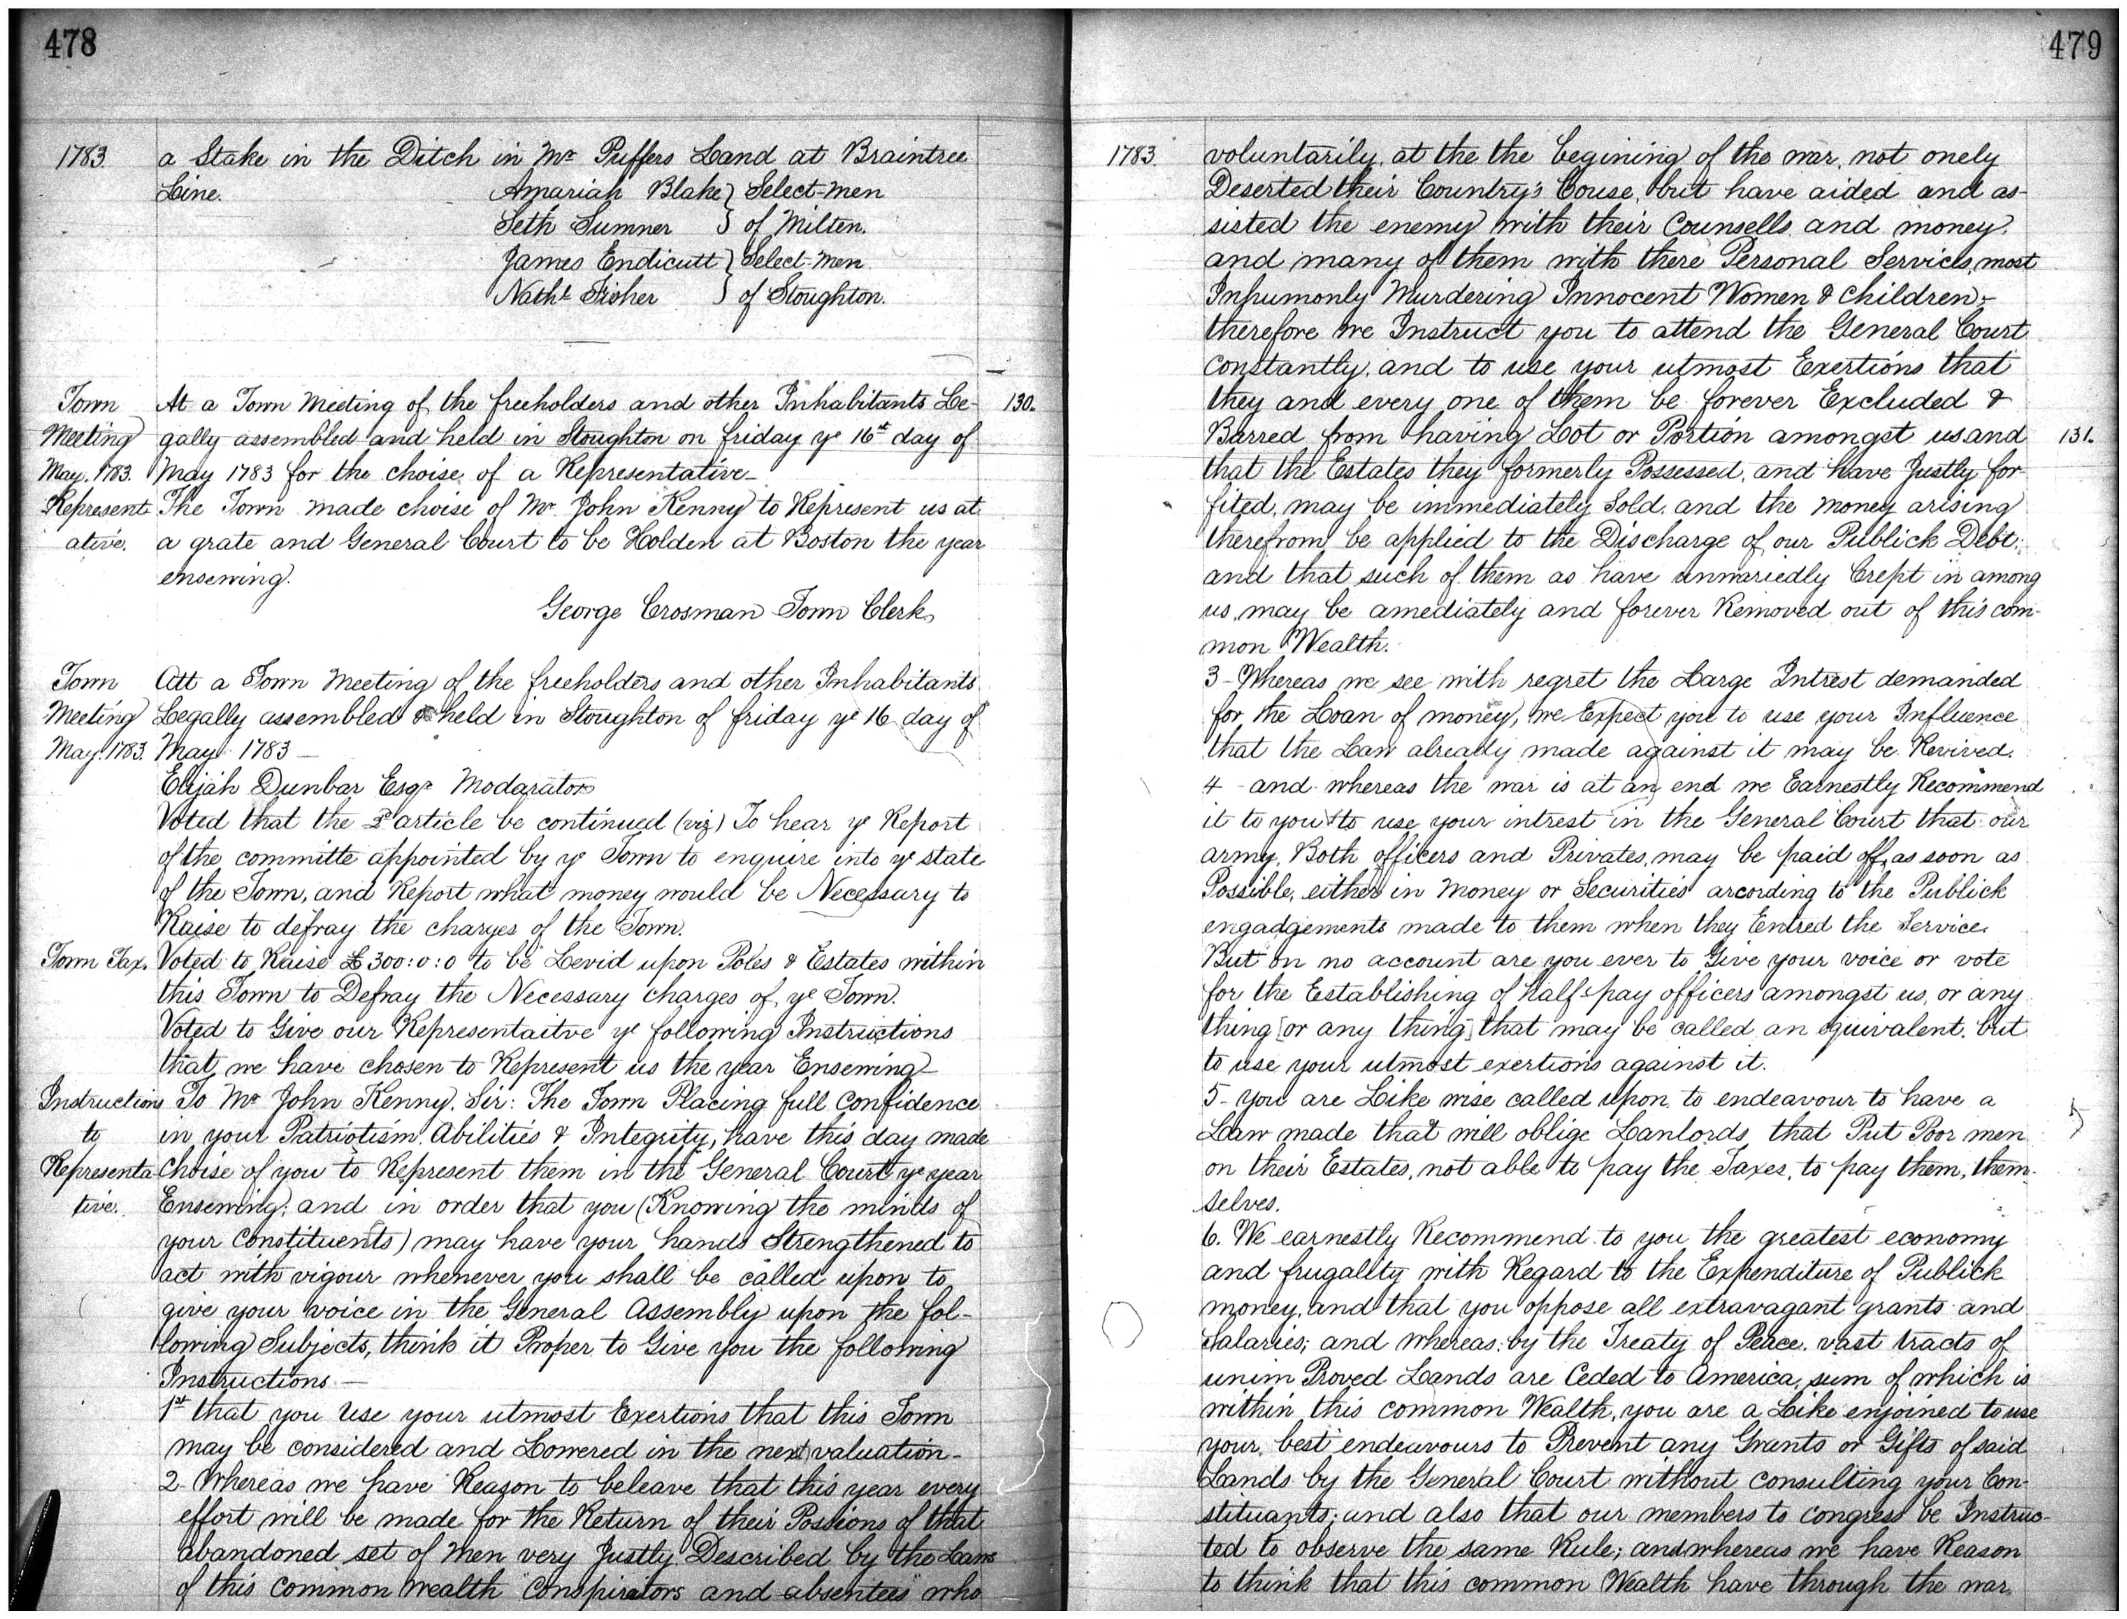 478
1783. a Stake in the Ditch in Mr Puffers Land at Braintree
Line. Amariah Blake } Select-men
Seth Sumner } of Milten.
James Endicutt } Select-men
Nathl Fisher } of Stoughton.
Town At a Town Meeting of the freeholders and other Inhabitants Le- 130.
Meeting gally assembled and held in Stoughton on friday ye 16th day of
May. 1783. May 1783 for the choise of a Representative-
Represent The Town made choise of Mr John Kenny to Represent us at
ative. a grate and General Court to be Holden at Boston the year
ensewing.
George Crosman Town Clerk,
Town Att a Town Meeting of the freeholders and other Inhabitants
Meeting Legally assembled & held in Stoughton of friday ye 16 day of
May. 1783. May 1783 -
Elijah Dunbar Esqr Modarator
Voted that the 2d article be continued (viz) To hear ye Report
of the committe appointed by ye Town to enquire into ye state
of the Town, and Report what money would be Necessary to
Raise to defray the charges of the Town.
Town Tax. Voted to Raise £300:0:0 to be Levid upon Poles & Estates within
this Town to Defray the Necessary charges of ye Town.
Voted to Give our Representaitve ye following Instructions
that we have chosen to Represent us the year Ensewing-
Instructions To Mr John Kenny. Sir: The Town Placing full Confidence
to in your Patriotism, Abilities & Integrity, have this day made
Representa choise of you to Represent them in the General Court ye year
tive. Ensewing; and in order that you (Knowing the minds of
your Constituents) may have your hands Strengthened to
act with vigour whenever you shall be called upon to
give your voice in the General Assembly upon the fol-
lowing Subjects, think it Proper to Give you the following
Instructions -
1st that you Use your utmost Exertions that this Town
may be considered and Lowered in the next valuation-
2 Whereas we have Reason to beleave that this year every
effort will be made for the Return of their Possions of that
abandoned set of men very Justly Described by the Laws
of this common Wealth "Conspirators and absentees" who
479
1783. voluntarily, at the the begining of the war, not onely
Deserted their Country's Couse, but have aided and as-
sisted the enemy with their Counsells and money,
and many of them with there Personal Services, most
Inhumonly Murdering Innocent Women & Children;-
therefore we Instruct you to attend the General Court
constantly, and to use your utmost Exertions that
they and every one of them be forever Excluded &
Barred from having Lot or Portion amongst us and 131.
that the Estates they formerly Possessed, and have Justly for-
fited, may be immediately Sold, and the money arising
therefrom be applied to the Discharge of our Publick Debt;
and that such of them as have unwariedly Crept in among
us, may be amediately and forever Removed out of this com-
mon Wealth.
3- Whereas we see with regret the Large Intrest demanded
for the Loan of money, we Expect you to use your Influence
that the Law already made against it may be Revived.
4 - and whereas the war is at an end we Earnestly Recommend
it to you to use your intrest in the General Court that our
army, Both officers and Privates, may be paid off, as soon as
Possible, either in money or Securities arcording to the Publick
engadgements made to them when they Entred the Service.
But on no account are you ever to Give your voice or vote
for the Establishing of half-pay officers amongst us, or any
thing [or any thing] that may be called an equivalent, but
to use your utmost exertions against it.
5- you are Like wise called upon to endeavour to have a
Law made that will oblige Lanlords, that Put Poor men
on their Estates, not able to pay the Taxes, to pay them, them-
selves.
6. We earnestly Recommend to you the greatest economy
and frugality with Regard to the Expenditure of Publick
money, and that you oppose all extravagant grants and
salaries; and whereas by the Treaty of Peace, vast tracts of
unim Proved Lands are Ceded to America, sum of which is
within this common Wealth, you are a Like enjoined to use
your best endeavours to Prevent any Grants or Gifts of said
Lands by the General Court without consulting your Con-
stituants; and also that our members to congress be Instruc-
ted to observe the same Rule; and whereas we have Reason
to think that this common Wealth have through the war